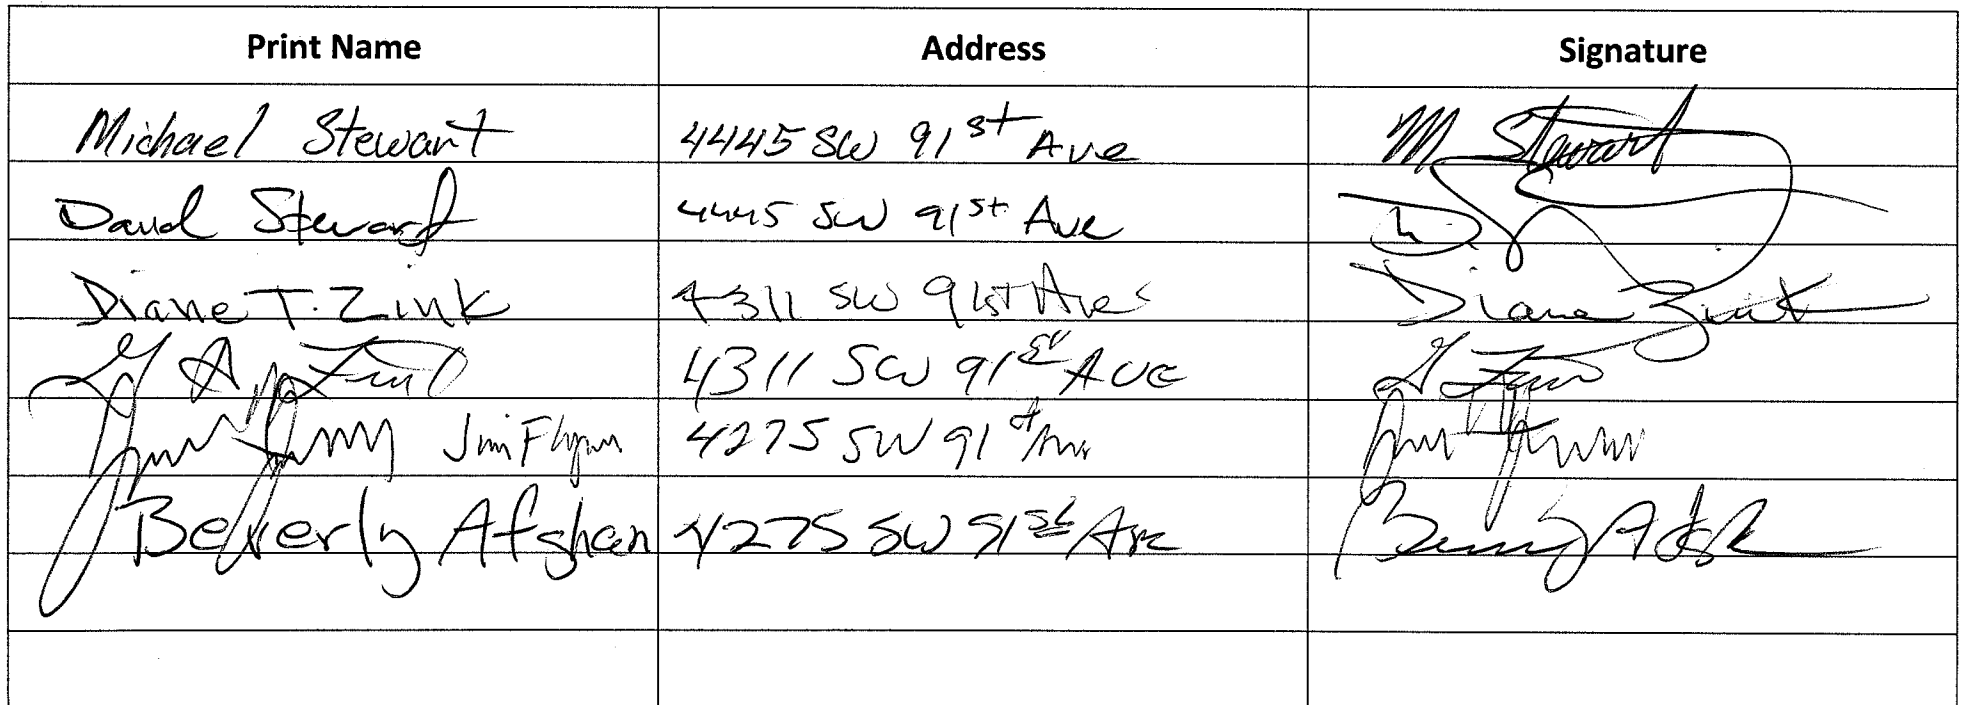 Print Name Address Signature
Michael Stewart 4445 SW 91st Ave M Stewart
David Stewart 4445 SW 91st Ave D.
Diane T. Zink 4311 SW 91st Ave Diane Zink
G A Zink 4311 SW 91st AVE G Zink
Jim Flynn Jim Flynn 4275 SW 91st Ave Jim Flynn
Beverly Afghan 4275 SW 91st Ave Beverly Afghan